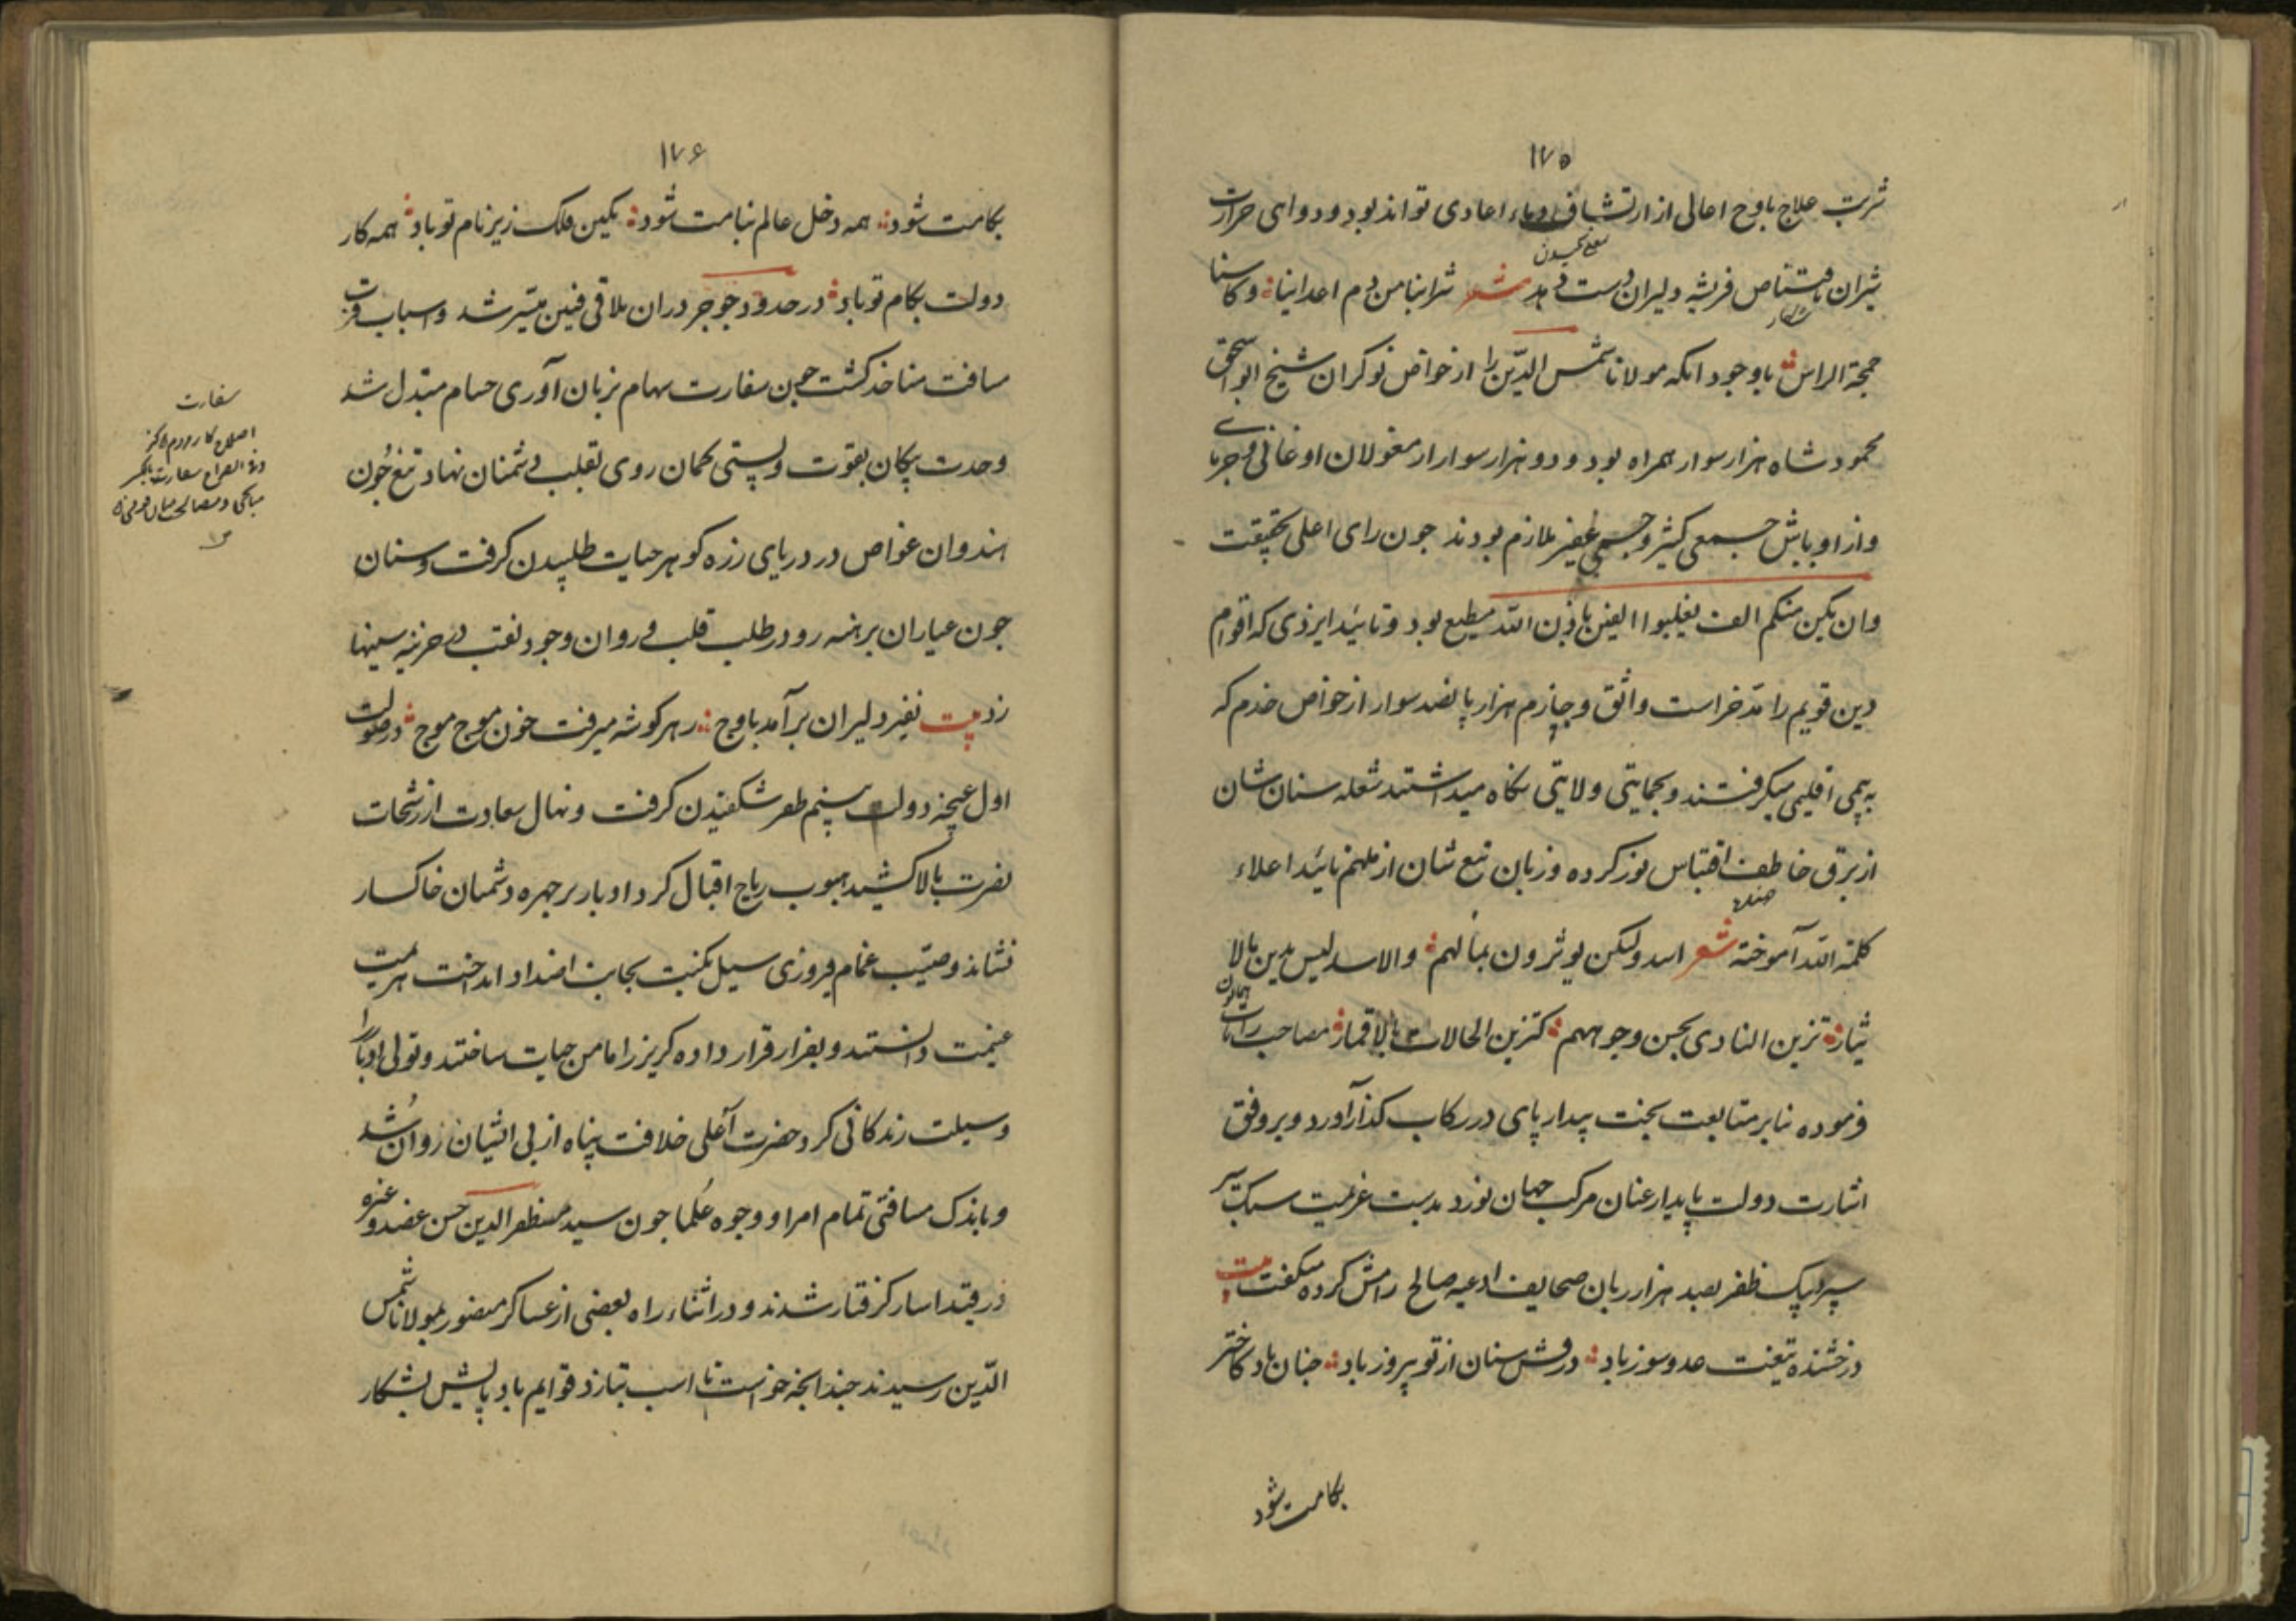 ۱۷۵
شربت علاج باوج اعالی از ارتشاف دماء اعادی تواند بود و دوای حرارت
شیران باقتناص فریشه دلیران دست دهد شعر شرابنا من دم اعداینا و کاسنا
جمجمة الراس باوجود آنکه مولانا شمس الدین را از خواص نوکران شیخ ابو اسحق
محمود شاه هزار سوار همراه بود و دو هزار سوار از مغولان اوغانی و جرمایی
و از اوباش جمعی کثیر و جمی غفیر ملازم بودند چون رای اعلی بحقیقت
وان یکن منکم الف یغلبوا الفین باذن الله مطیع بود و تائید ایزدی که اقوام
دین قویم را مدخر است واثق و جازم هزار پانصد سوار از خواص خدم که
به پیمی اقلیمی میگرفتند و بحمایتی ولایتی نگاه میداشتند شعله سنان شان
از برق خاطف اقتباس نور کرده و زبان تیغ شان از ملهم تائید اعلاء
کلمة الله آموخته شعر اسد ولکن یوثرون بمالهم والاسد لیس یدین بالا
یثار تزین النادی بحسن وجوههم کتزین الحالات بالاقمار مصاحب رایات همایون
فرموده بنابر متابعت بخت بیدار پای در رکاب کذار آورد و بر وفق
اشارت دولت پایدار عنان مرکب جهان نورد بدست عزیمت سبک تر
سپرد پیک ظفر بصد هزار زبان صحایف ادعیه صالح رامش کرده میگفت بیت
درخشنده تیغت عدو سوز باد درفش سنان از تو پیروز باد چنان باد کاختر
بکامت شود
۱۷۶
بکامت شود همه دخل عالم بنامت شود نگین فلک زیر نام تو باد همه کار
دولت بکام تو باد در حدود جوجرد ران ملاقی فئین میسر شد و اسباب قرب
مسافت مناخذ گشت چون سفارت سهام بزبان آوری حسام مبدل شد
وحدت پیکان بقوت و پستی کمان روی بقلب دشمنان نهاد تیغ چون
هندوان غواص در دریای زره گوهر حیات طلبیدن گرفت و سنان
چون عیاران برهنه رو در طلب قلب و روان وجود نقب در خزینه سینها
زد بیت نفیر دلیران برآمد باوج ز هر گوشه میرفت خون موج موج در صولت
اول غنچه دولت بنسیم ظفر شکفیدن گرفت و نهال سعادت از رشحات
نصرت بالا کشید هبوب ریاح اقبال گرد ادبار بر چهره دشمنان خاکسار
نشاند و صیّب غمام فیروزی سیل نکبت بجانب اضداد انداخت هزیمت
غنیمت دانستند و بفرار قرار داده گریز را مامن حیات ساختند و تولی ادبار را
وسیلت زندگانی کرد حضرت اعلی خلافت پناه از پی ایشان روان شد
و باندک مسافتی تمام امرا و وجوه علما چون سید مظفر الدین حسن عضد و غیره
در قید اسار گرفتار شدند و در اثناء راه بعضی از عساکر منصور بمولانا شمس
الدین رسیدند چندانچه خواست تا اسب بتازد قوایم باد پایش بشکار
سفارت
اصلاح کار مردم